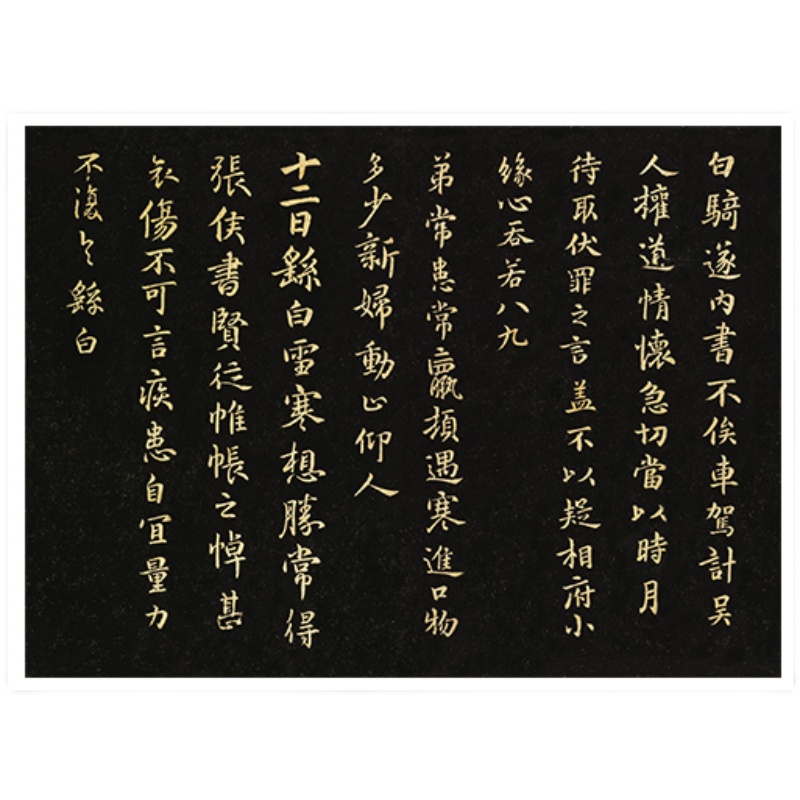 白騎遂內書不俟車駕計吴
人權道情懷急切當以時月
待取伏罪之言盖不以疑相府小
緣心吞若八九
弟常患常羸頓遇寒進口物
多少新婦動止仰人
十二日繇白雪寒想勝常得
張侯書賢從帷帳之悼甚
哀傷不可言疾患自宜量力
不復具繇白